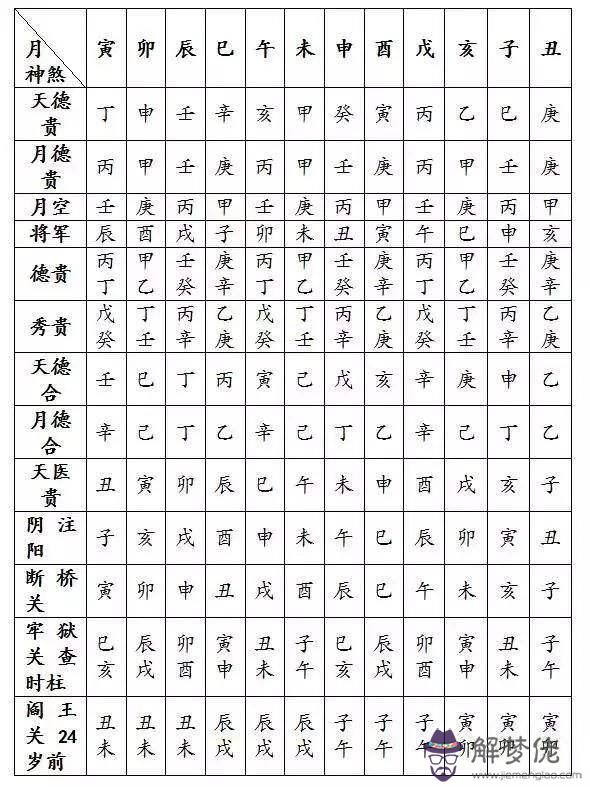 月 神煞 寅 卯 辰 巳 午 未 申 酉 戌 亥 子 丑
天德貴 丁 申 壬 辛 亥 甲 癸 寅 丙 乙 巳 庚
月德貴 丙 甲 壬 庚 丙 甲 壬 庚 丙 甲 壬 庚
月空 壬 庚 丙 甲 壬 庚 丙 甲 壬 庚 丙 甲
将军 辰 酉 戌 子 卯 未 丑 寅 午 巳 申 亥
德貴 丙丁 甲乙 壬癸 庚辛 丙丁 甲乙 壬癸 庚辛 丙丁 甲乙 壬癸 庚辛
秀貴 戊癸 丁壬 丙辛 乙庚 戊癸 丁壬 丙辛 乙庚 戊癸 丁壬 丙辛 乙庚
天德合 壬 巳 丁 丙 寅 己 戊 亥 辛 庚 申 乙
月德合 辛 己 丁 乙 辛 己 丁 乙 辛 己 丁 乙
天医貴 丑 寅 卯 辰 巳 午 未 申 酉 戌 亥 子
阴注阳 子 亥 戌 酉 申 未 午 巳 辰 卯 寅 丑
断桥关 寅 卯 申 丑 戌 酉 辰 巳 午 未 亥 子
牢狱关查时柱 巳亥 辰戌 卯酉 寅申 丑未 子午 巳亥 辰戌 卯酉 寅申 丑未 子午
阎王关24岁前 丑未 丑未 丑未 辰戌 辰戌 辰戌 子午 子午 子午 寅卯 寅卯 寅卯
解梦佬
www.jiemenglao.com